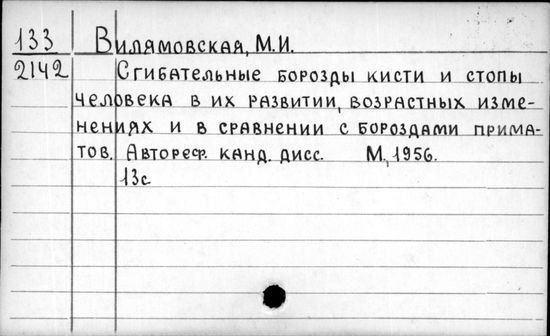 133 Вилямовская, М.И.
2142 Сгибательные борозды кисти и стопы
человека в их развитии, возрастных изме-
нениях и в сравнении с бороздами прима-
тов. Автореф. канд. дисс. М., 1956.
13с